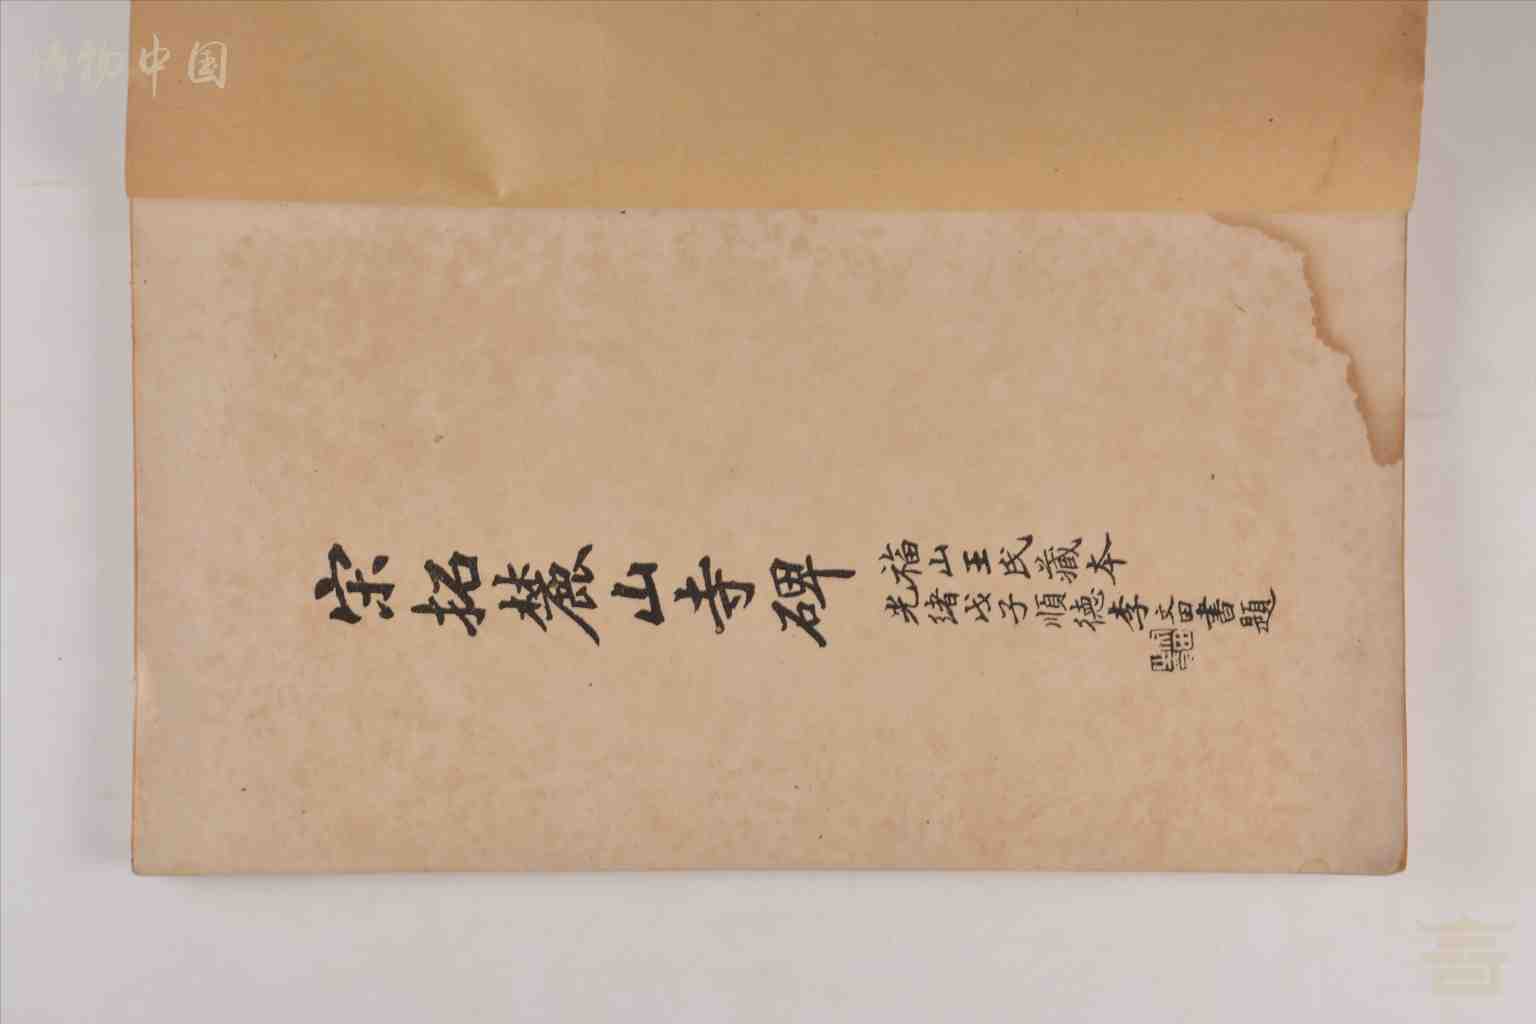 博物中国
宋拓麓山寺碑
福山王氏藏本
光緒戊子順德李文田書題